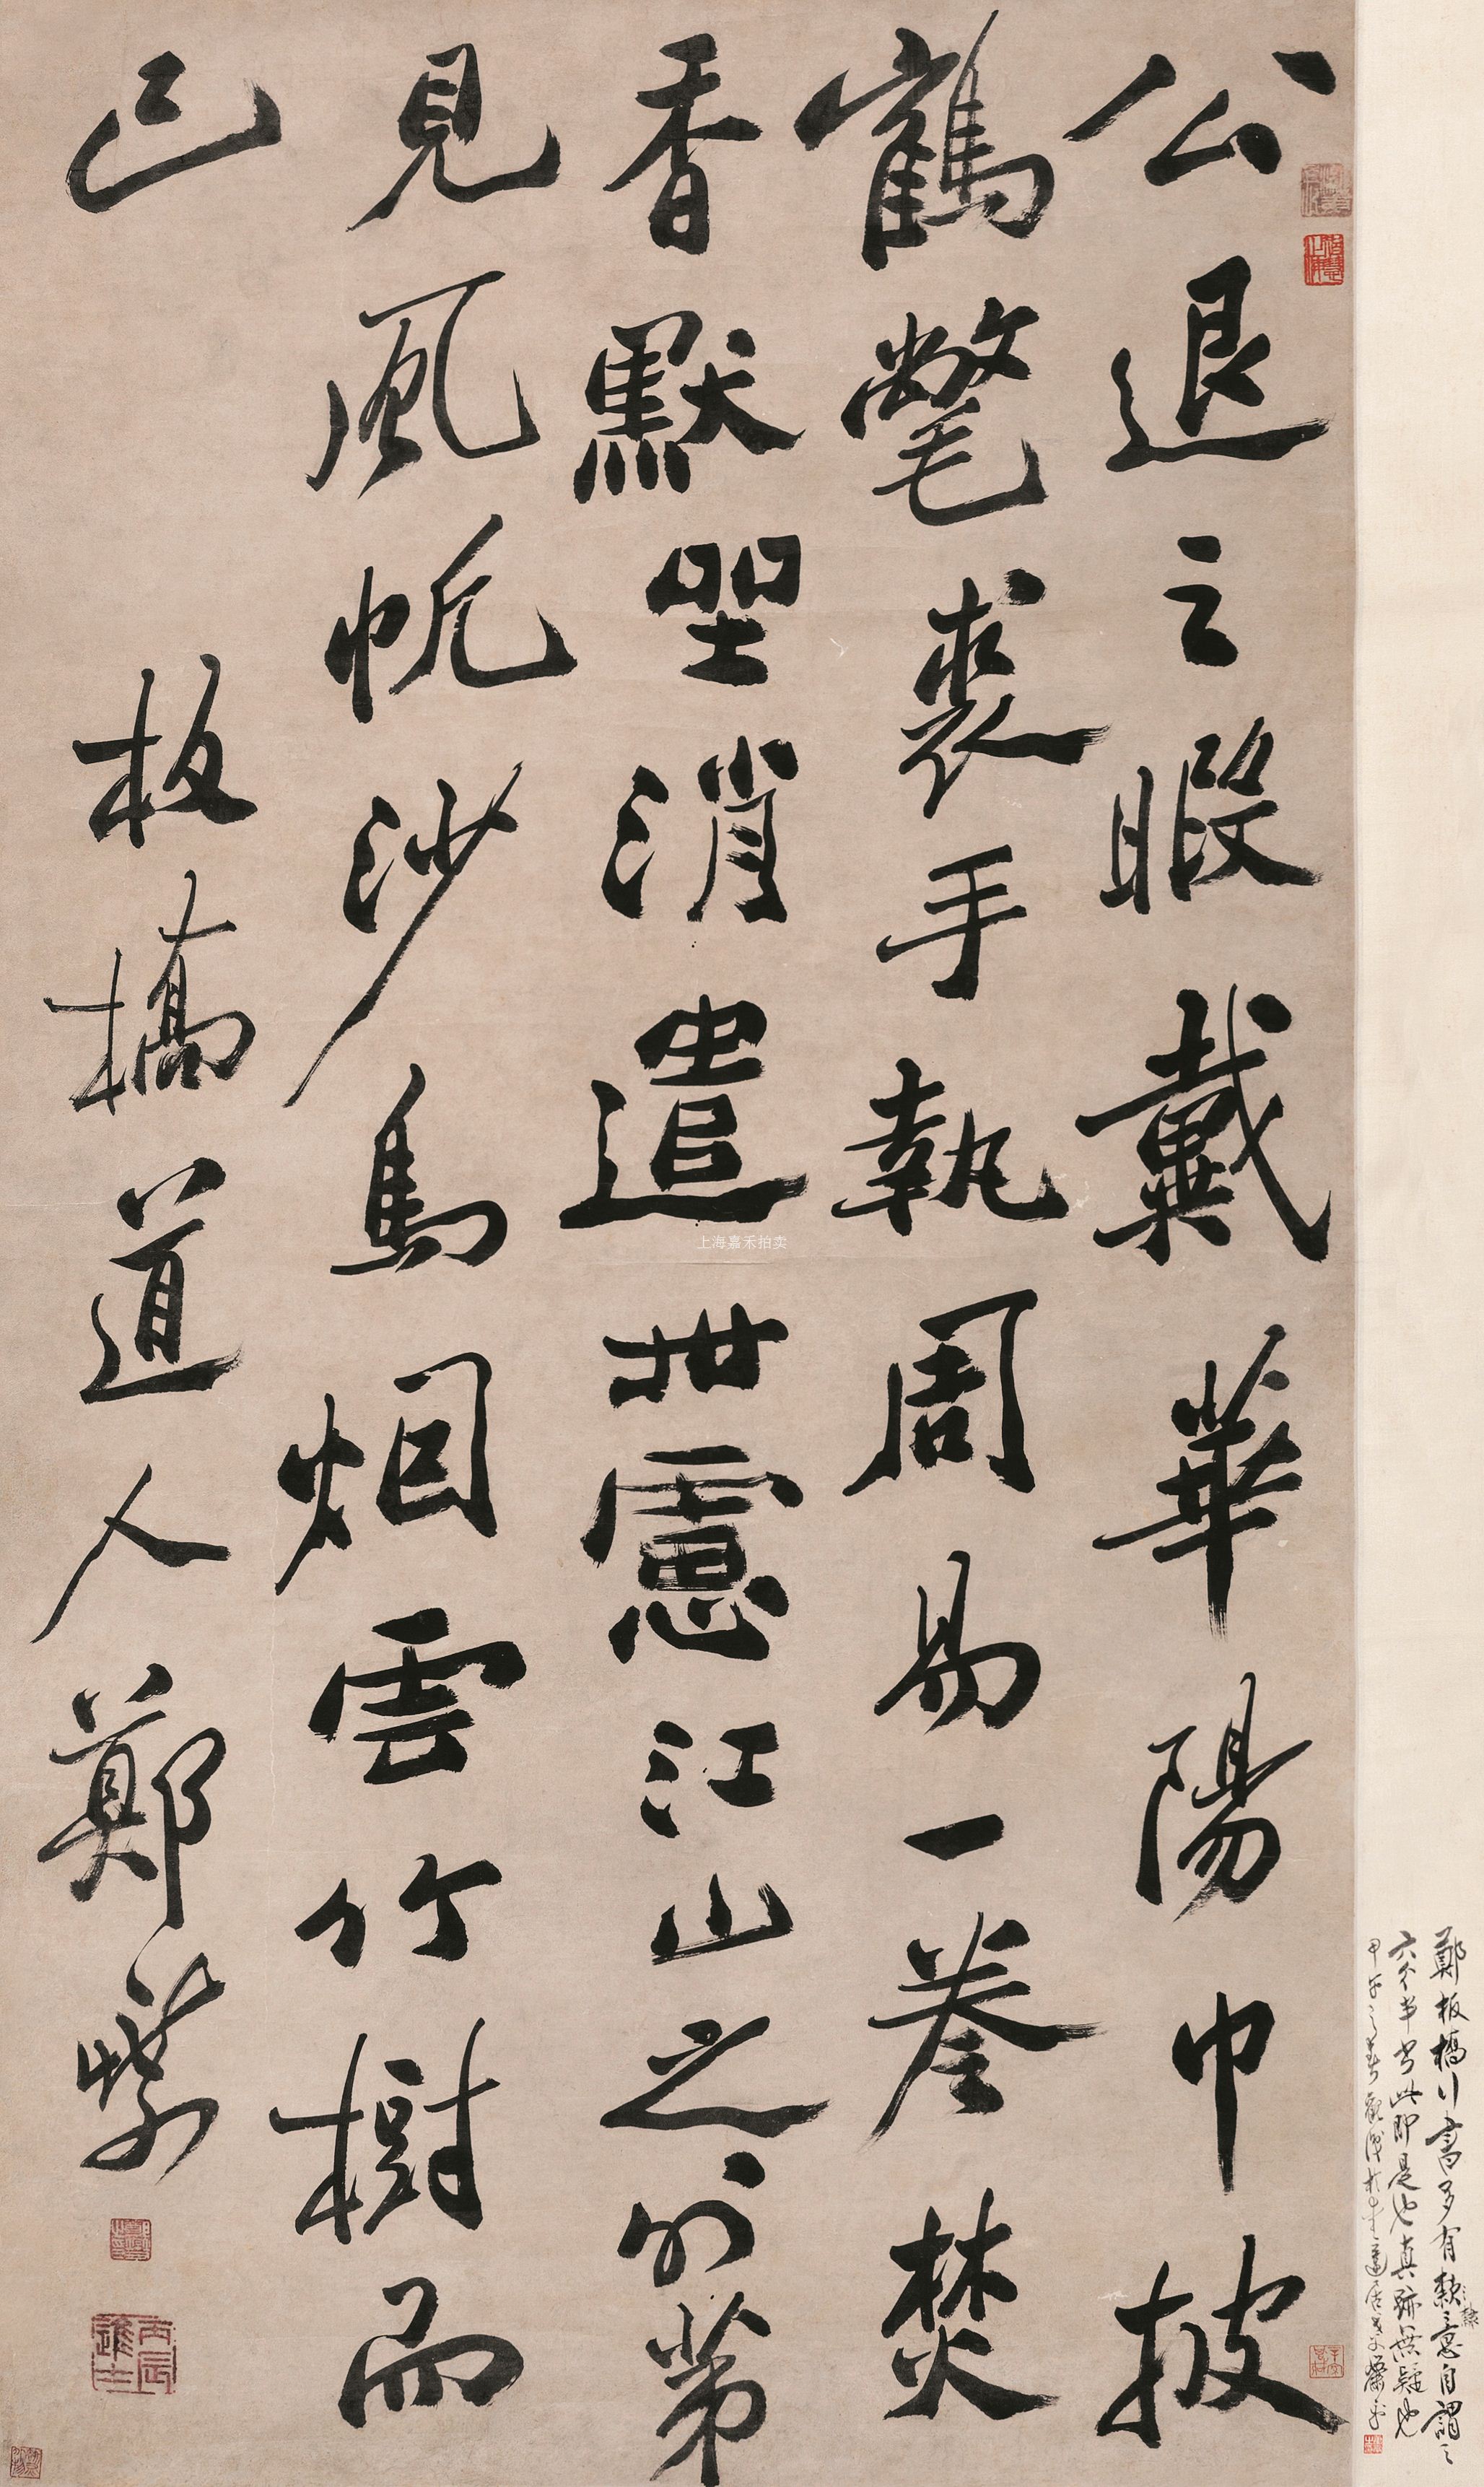 鄭板橋行書多有意自謂之
六分半書此即是也真跡無疑也
甲午之春觀識於
公退之暇戴華陽巾披
鶴氅裘手執周易一卷焚
香默坐消遣世慮江山之外第
見風帆沙鳥烟雲竹樹而
已
板橋道人鄭燮
丙辰進士
上海嘉禾拍卖